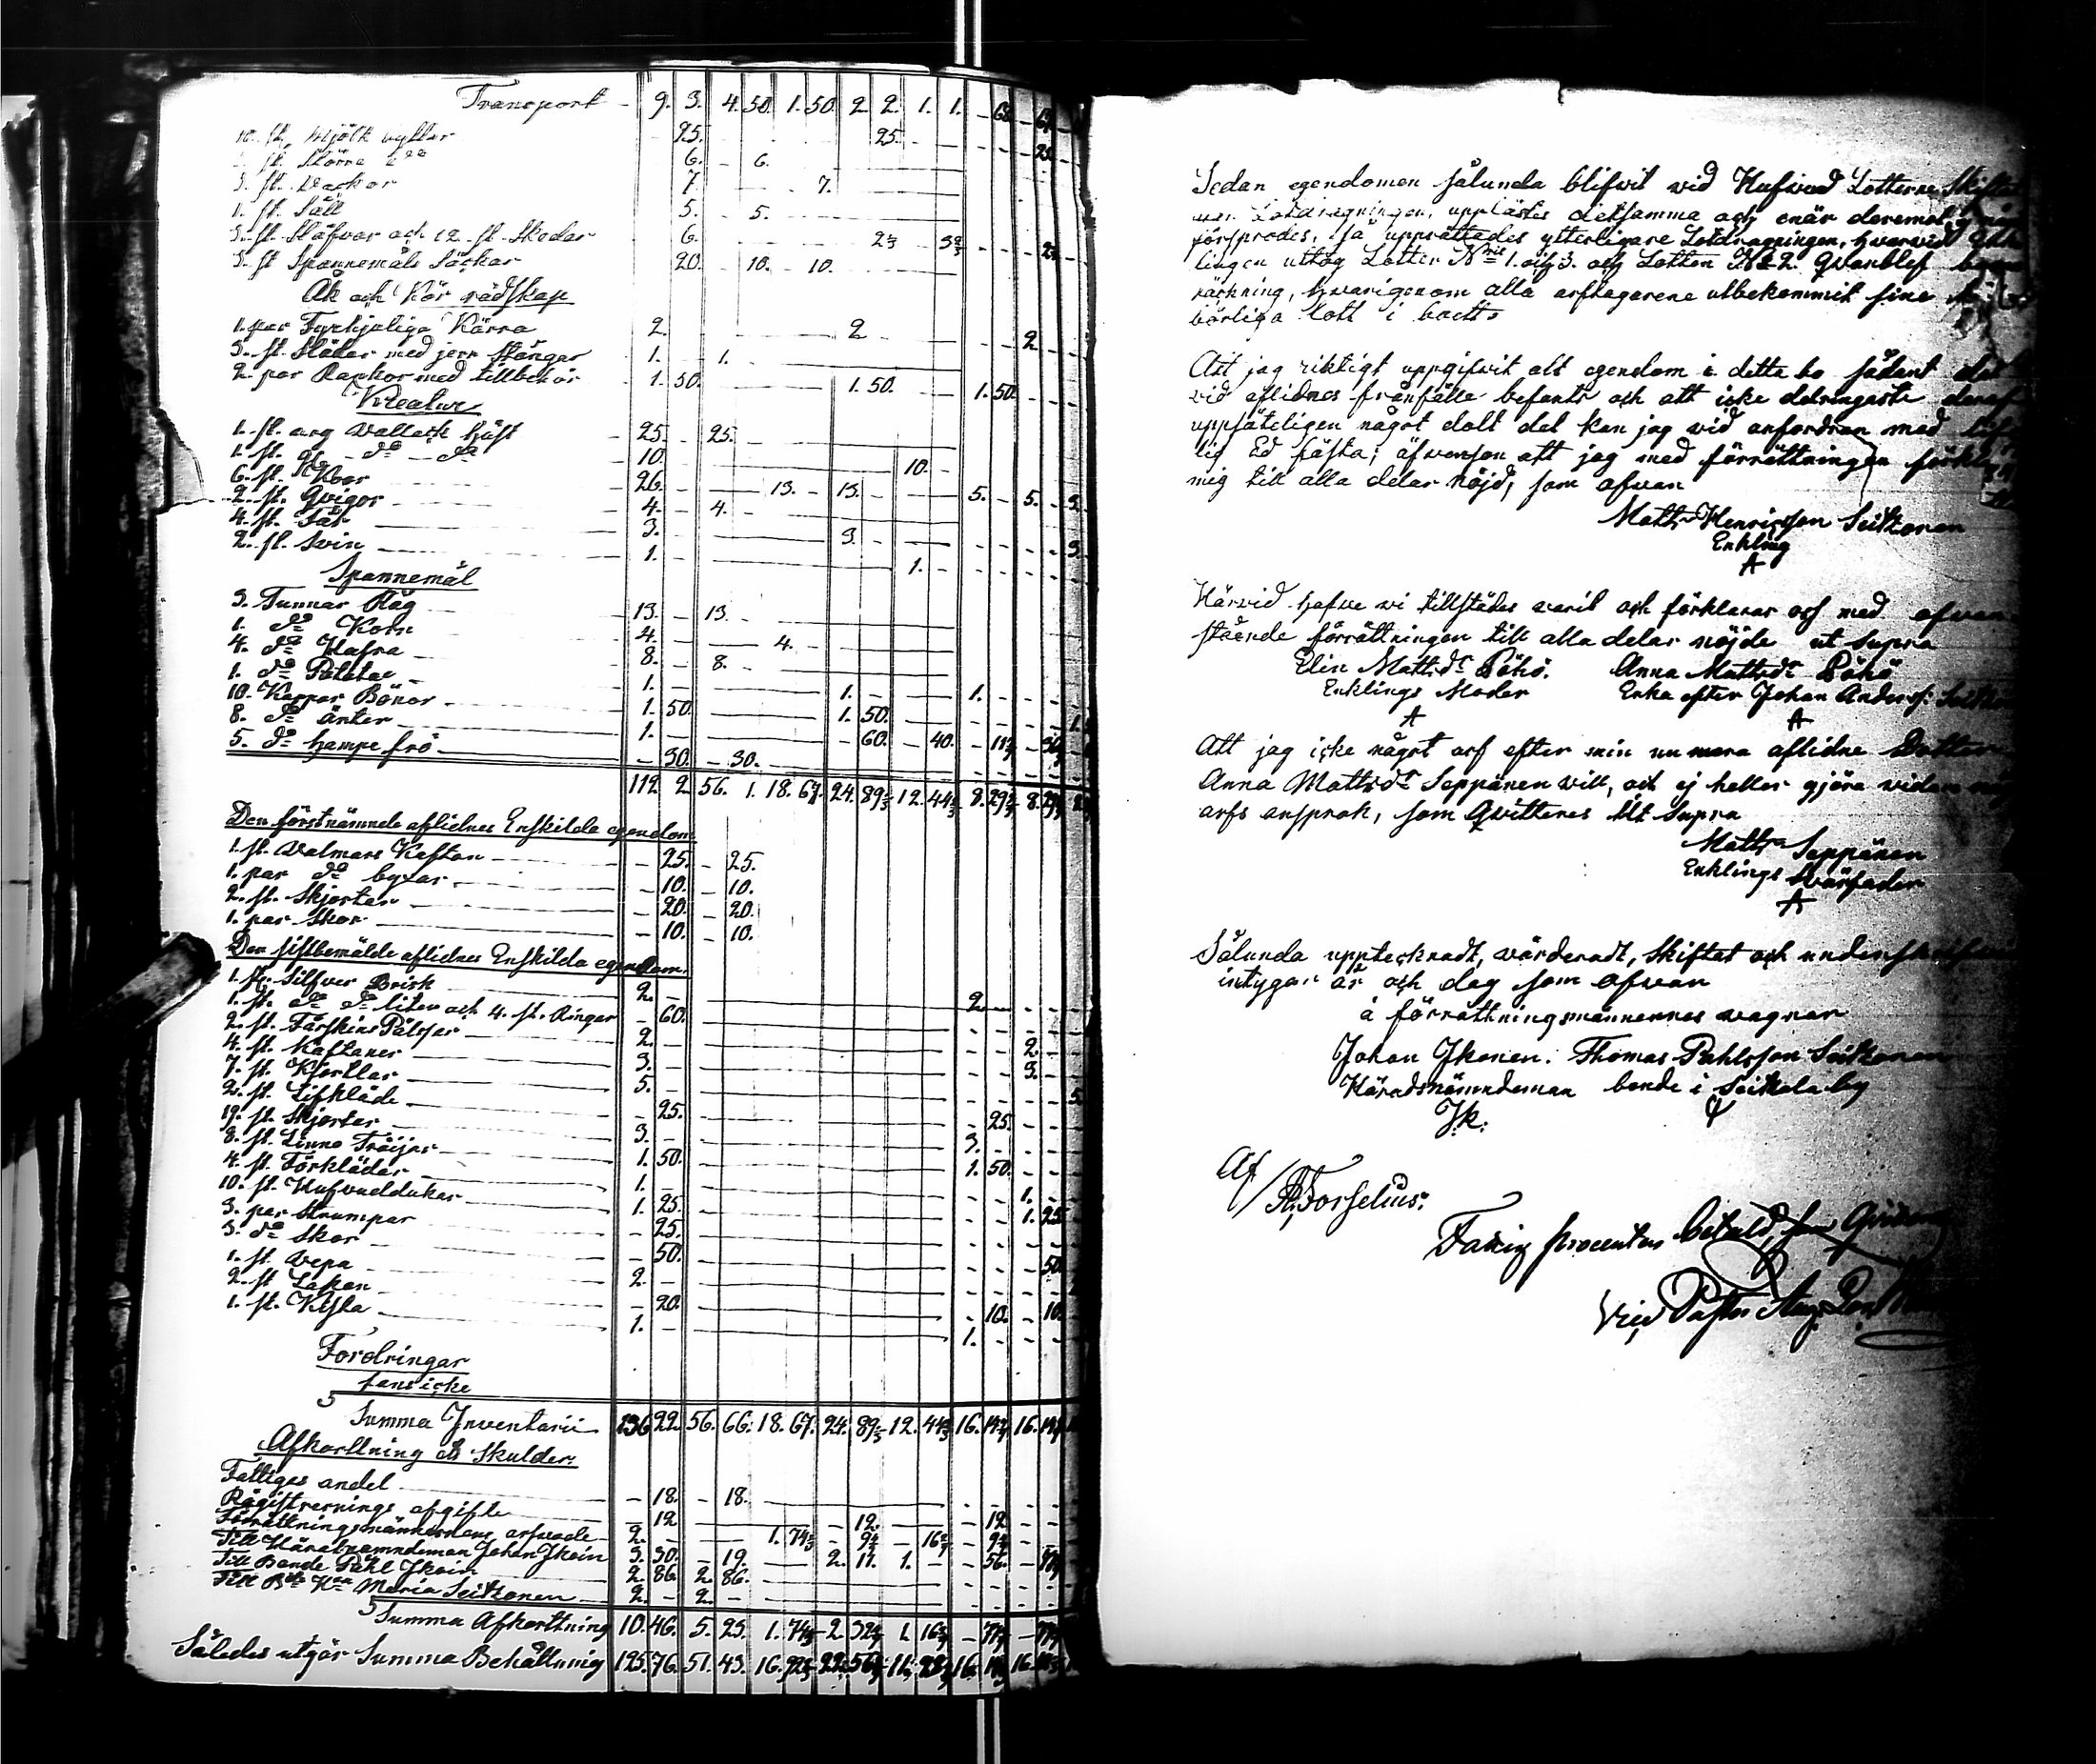 Transport 9. 3. 4. 50. 1. 50. 2. 2. 1. 1.
10. st. Mjölk byttor 25. 25.
st. Större d:o 6. 6.
3. st. Wackor 7. 7.
1. st. Såll 5. 5.
3. st. Stäfvor och 12. st. Skedar 6. 2 2/3
3. st Spannemåls Säckar 20. 10. 10.
Åk och Kör rädskap
1. par Fyrhjuliga Kärra 2. 2 2.
3. st. Slädar med jern stänger 1. 1.
2. par Rapkor med tillbehör 1. 50. 1. 50. 1. 50.
Kreatur
1. st. arg Wallack häst 25. 25.
1. st. d:o d:o 10. 10.
6. st. Koor 26. 13. 13. 5. 5.
2. st. Qvigor 4. 4.
4. st. Får 3. 3. 3.
2. st. Svin 1. 1.
Spannemål
3. Tunnor Råg 13. 13.
1. d:o Korn 4. 4.
4. d:o Hafra 8. 8.
1. d:o Potatoe 1. 1. 1.
10. Kappar Bönor 1. 50. 1. 50.
8. d:o ärter 1. 60. 40.
5. d:o hampe frö 30. 30.
112 2 56. 1. 18. 67. 24. 89 12. 44 8. 29 8.
Den förstnämnde aflidnes Enskilda egendom
1. st. Walmars Kaftan 25. 25.
1. par d:o byxor 10. 10.
2. st. Skjortor 20. 20.
1. par Skor 10. 10.
Den sistbemälde aflidnes Enskilda egendom.
1. st. Silfver Brisk 2. 2.
1. st. d:o d:o liten och 4. st. Ringar 60.
2. st. Fårskins Pälssar 2. 2.
4. st. Kaftaner 3. 3.
7. st. Kjortlar 5. 5.
2. st. Lifkläde 25. 25.
19. st. Skjortor 3. 3.
8. st. Linne Tröijor 1. 50. 1. 50.
4. st. Förkläder 1. 1.
10. st. Hufvuddukar 1. 25. 1. 25
3. par Strumpor 25.
3. d:o Skor 50. 50.
1. st. Vepa 2.
2. st Lakan 20. 10. 10.
1. st. Kista 1. 1.
Fordringar
fans icke
Summa Inventarii 136 22. 56. 66. 18. 67. 24. 89 12. 44 16. 16.
Afkortning och Skulder
Fattiges andel 18. 18.
Rägistrernings afgifte 12 12. 12
Förrättningsmännernas arfwode 2. 1. 74 16
Till Häradsnämndeman Johan Ikoin 3. 30. 19. 2. 11. 1. 56.
Till Bonde Påhl Ikoin 2. 86. 2. 86.
Till Maria Seitzonen 2. 2.
Summa Afkortning 10. 46. 5. 23. 1. 74 2. 32 1. 16
Således utgör Summa Behållning 125. 76. 51. 43. 16. 92 22. 56 11. 28 16. 16.
Sedan egendomen sålunda blifvit wid Hufvud Lotterne Skiftad
Lotdragningen, upplästes detsamma och enär deremot
försprodes, så upprättades ytterligare Lotdragningen, hvarvid
lingen uttog Lotter N:ris 1. och 3. och Lotten N:o 2. Qvarblef
räckning, hwarigenom alla arftagarene utbekommit sine
börliga Lott i boets
Att jag riktigt uppgifwit all egendom i detta bo sådant det
vid aflidnes frånfälle befants och att icke det ringaste deraf
uppsåteligen något dolt det kan jag vid anfordran med lif
lig Ed fästa; äfwensom att jag med förrättningen förkla
mig till alla delar nöjd, som ofwan
Matts Henricsson Seitzonen
Enkling
A
Härvid hafve vi tillstädes varit och förklarar oss med ofwan
stående förrättningen till alla delar nöjde ut supra
Elin Mattsd:r Pöhö. Anna Mattsd:r Pöhö
Enklings Moder Enka efter Johan Anderss:
A A
Att jag icke något arf efter min nu mera aflidne Dotter
Anna Mattsd:r Seppänen vill, och ej heller gjöra vidare
arfs anspråk, som Qvitteras Ut Supra
Matts Seppänen
Enklings Svärfader
A
Sålunda upptecknadt, wärderadt, Skiftat och
intygar år och dag som ofwan
å förrättningsmännernes wagnar
Johan Ikonen. Thomas Pahlsson Seitzonen
Häradsnämndeman bonde i Seitzola by
J.K.
Af
Forselius:
Fattig procenten betald,